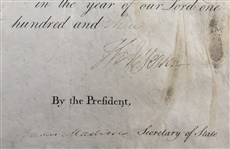 in the year of our Lord one
hundred and three
Th Jefferson
By the President,
James Madison Secretary of State